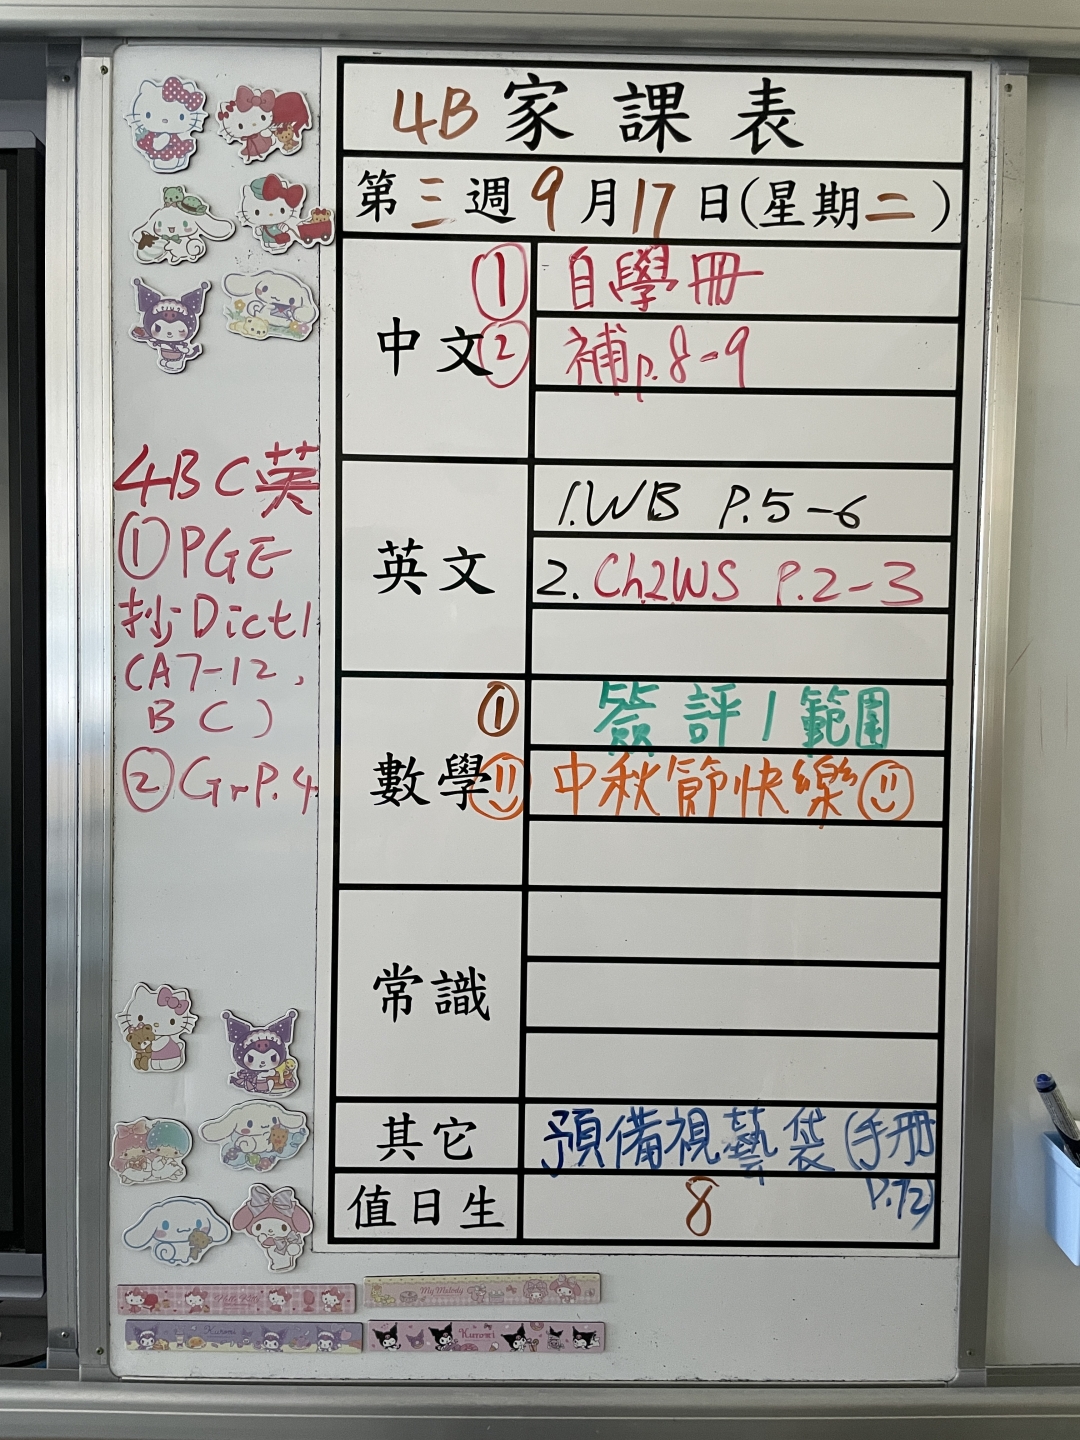 4B 家課表
第三週 9月17日(星期二)
中文
① 自學冊
② 補p.8-9
英文
1. WB P.5-6
2. Ch.2WS P.2-3
數學
① 簽評1範圍
中秋節快樂
常識
其它
預備視藝袋(手冊
P.72)
值日生
8
4B C英
① PGE
抄Dict1
(A7-12,
B C)
② GrP.4
My Melody
Kuromi
Kuromi